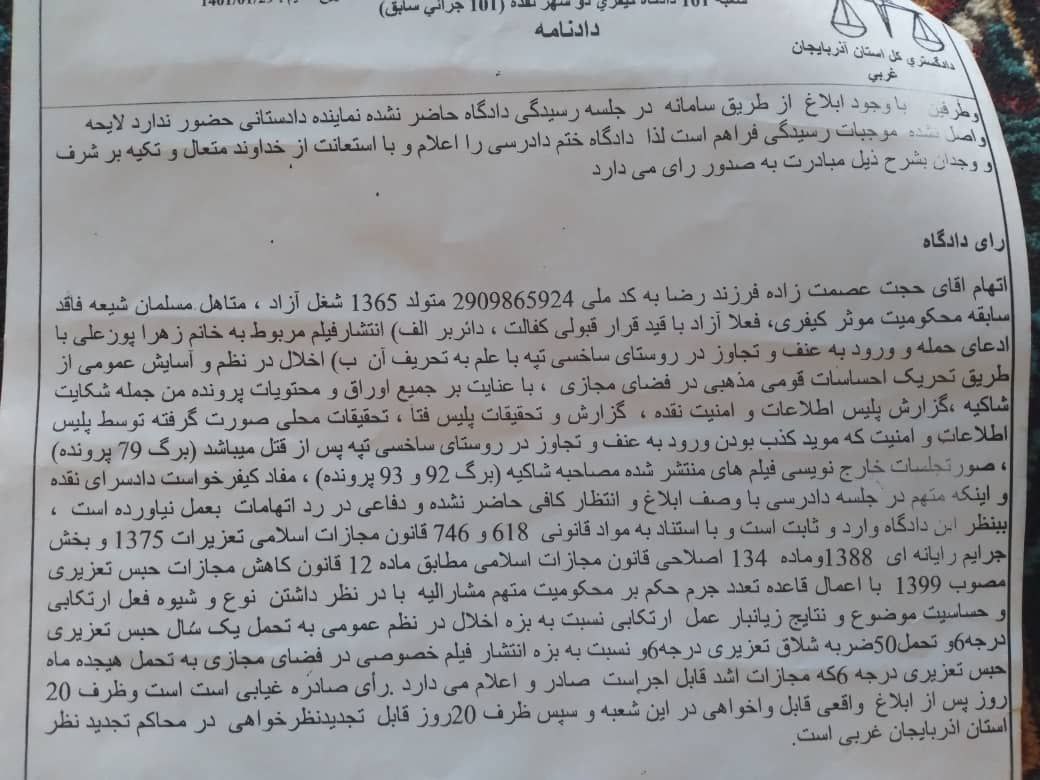 شعبه 101 دادگاه کیفری دو شهر نقده (101 جزائی سابق)
1401/01/29
دادنامه
دادگستری کل استان آذربایجان
غربی
وطرفین با وجود ابلاغ از طریق سامانه در جلسه رسیدگی دادگاه حاضر نشده نماینده دادستانی حضور ندارد لایحه
واصل نشده موجبات رسیدگی فراهم است لذا دادگاه ختم دادرسی را اعلام و با استعانت از خداوند متعال و تکیه بر شرف
و وجدان بشرح ذیل مبادرت به صدور رای می دارد
رای دادگاه
اتهام اقای حجت عصمت زاده فرزند رضا به کد ملی 2909865924 متولد 1365 شغل آزاد ، متاهل مسلمان شیعه فاقد
سابقه محکومیت موثر کیفری، فعلا آزاد با قید قرار قبولی کفالت ، دائربر الف) انتشارفیلم مربوط به خانم زهرا پورعلی با
ادعای حمله و ورود به عنف و تجاوز در روستای ساخسی تپه با علم به تحریف آن ب) اخلال در نظم و آسایش عمومی از
طریق تحریک احساسات قومی مذهبی در فضای مجازی ، با عنایت بر جمیع اوراق و محتویات پرونده من جمله شکایت
شاکیه ،گزارش پلیس اطلاعات و امنیت نقده ، گزارش و تحقیقات پلیس فتا ، تحقیقات محلی صورت گرفته توسط پلیس
اطلاعات و امنیت که موید کذب بودن ورود به عنف و تجاوز در روستای ساخسی تپه پس از قتل میباشد (برگ 79 پرونده)
، صورتجلسات خارج نویسی فیلم های منتشر شده مصاحبه شاکیه (برگ 92 و 93 پرونده) ، مفاد کیفرخواست دادسرای نقده
و اینکه متهم در جلسه دادرسی با وصف ابلاغ و انتظار کافی حاضر نشده و دفاعی در رد اتهامات بعمل نیاورده است ،
بنظر این دادگاه وارد و ثابت است و با استناد به مواد قانونی 618 و 746 قانون مجازات اسلامی تعزیرات 1375 و بخش
جرایم رایانه ای 1388وماده 134 اصلاحی قانون مجازات اسلامی مطابق ماده 12 قانون کاهش مجازات حبس تعزیری
مصوب 1399 با اعمال قاعده تعدد جرم حکم بر محکومیت متهم مشارالیه با در نظر داشتن نوع و شیوه فعل ارتکابی
و حساسیت موضوع و نتایج زیانبار عمل ارتکابی نسبت به بزه اخلال در نظم عمومی به تحمل یک سال حبس تعزیری
درجه6و تحمل50ضربه شلاق تعزیری درجه6و نسبت به بزه انتشار فیلم خصوصی در فضای مجازی به تحمل هیجده ماه
حبس تعزیری درجه 6که مجازات اشد قابل اجراست صادر و اعلام می دارد .رأی صادره غیابی است است وظرف 20
روز پس از ابلاغ واقعی قابل واخواهی در این شعبه و سپس ظرف 20روز قابل تجدیدنظرخواهی در محاکم تجدید نظر
استان اذربایجان غربی است.